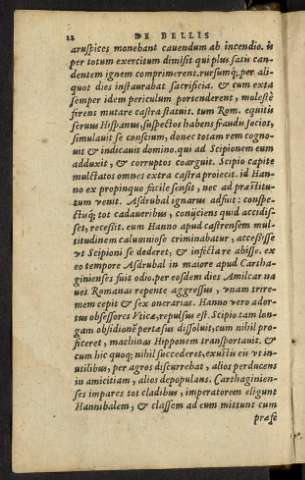 12 DE BELLIS
aruspices monebant cauendum ab incendio. is
per totum exercitum dimisit qui plus satis can-
dentem ignem comprimerent. rursumq́; per ali-
quot dies instaurabat sacrificia. & cum exta
semper idem periculum portenderent, molestè
firens mutare castra statuit. tum Rom. equitis
seruus Hispanus, suspectos habens fraudis socios,
simulauit se conscium, donec totam rem cogno-
uit & indicauit domino. qui ad Scipionem eum
adduxit, & corruptos coarguit. Scipio capite
mulctatos omnes extra castra proiecit. id Han-
no ex propinquo facile sensit, nec ad præstitu-
tum venit. Asdrubal ignarus adfuit: conspe-
ctuq́; tot cadaueribus, conijciens quid accidis-
set, recessit. eum Hanno apud castrensem mul-
titudinem calumniose criminabatur, accessisse
vt Scipioni se dederet, & infecta re abisse. ex
eo tempore Asdrubal in maiore apud Cartha-
ginienses fuit odio. per eosdem dies Amilcar na
ues Romanas repente aggressus, vnam trire-
mem cepit & sex onerarias. Hanno vero ador-
tus obsessores Vticæ, repulsus est. Scipio tam lon-
gam obsidionē pertæsus dissoluit, cum nihil pro-
ficeret, machinas Hipponem transportauit. &
cum hic quoq; nihil succederet, exustis eis vt in-
utilibus, per agros discurrebat, alios perducens
in amicitiam, alios depopulans. Carthaginien-
ses impares tot cladibus, imperatorem eligunt
Hannibalem, & classem ad eum mittunt cum
præfe